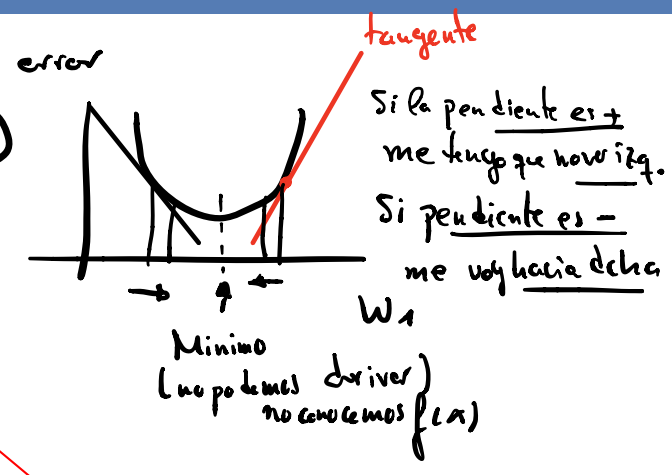 tangente
error
Si la pendiente es +
me tengo que mover izq.
Si pendiente es -
me voy hacia dcha
W1
Minimo
(no podemos derivar)
no conocemos f(x)